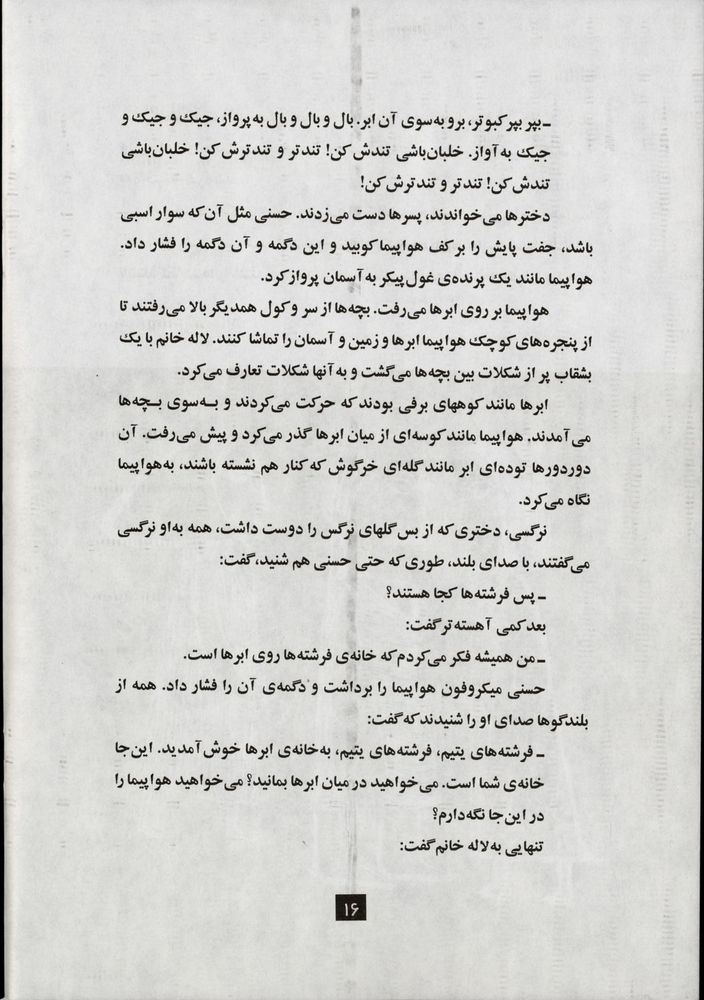 ـ بپر بپر کبوتر، برو به‌سوی آن ابر. بال و بال و بال به‌پرواز، جیک و جیک و
جیک به‌آواز. خلبان‌باشی تندش کن! تندتر و تندترش کن! خلبان‌باشی
تندش کن! تندتر و تندترش کن!
دخترها می‌خواندند، پسرها دست می‌زدند. حسنی مثل آن‌که سوار اسبی
باشد، جفت پایش را بر کف هواپیما کوبید و این دگمه و آن دگمه را فشار داد.
هواپیما مانند یک پرنده‌ی غول‌پیکر به آسمان پرواز کرد.
هواپیما بر روی ابرها می‌رفت. بچه‌ها از سر و کول همدیگر بالا می‌رفتند تا
از پنجره‌های کوچک هواپیما ابرها و زمین و آسمان را تماشا کنند. لاله خانم با یک
بشقاب پر از شکلات بین بچه‌ها می‌گشت و به آنها شکلات تعارف می‌کرد.
ابرها مانند کوههای برفی بودند که حرکت می‌کردند و به‌سوی بچه‌ها
می‌آمدند. هواپیما مانند کوسه‌ای از میان ابرها گذر می‌کرد و پیش می‌رفت. آن
دوردورها توده‌ای ابر مانند گله‌ای خرگوش که کنار هم نشسته باشند، به‌هواپیما
نگاه می‌کرد.
نرگسی، دختری که از بس گلهای نرگس را دوست داشت، همه به‌او نرگسی
می‌گفتند، با صدای بلند، طوری که حتی حسنی هم شنید، گفت:
ـ پس فرشته‌ها کجا هستند؟
بعد کمی آهسته‌تر گفت:
ـ من همیشه فکر می‌کردم که خانه‌ی فرشته‌ها روی ابرها است.
حسنی میکروفون هواپیما را برداشت و دگمه‌ی آن را فشار داد. همه از
بلندگوها صدای او را شنیدند که گفت:
ـ فرشته‌های یتیم، فرشته‌های یتیم، به‌خانه‌ی ابرها خوش آمدید. این‌جا
خانه‌ی شما است. می‌خواهید در میان ابرها بمانید؟ می‌خواهید هواپیما را
در این‌جا نگه‌دارم؟
تنهایی به‌لاله خانم گفت:
۱۶